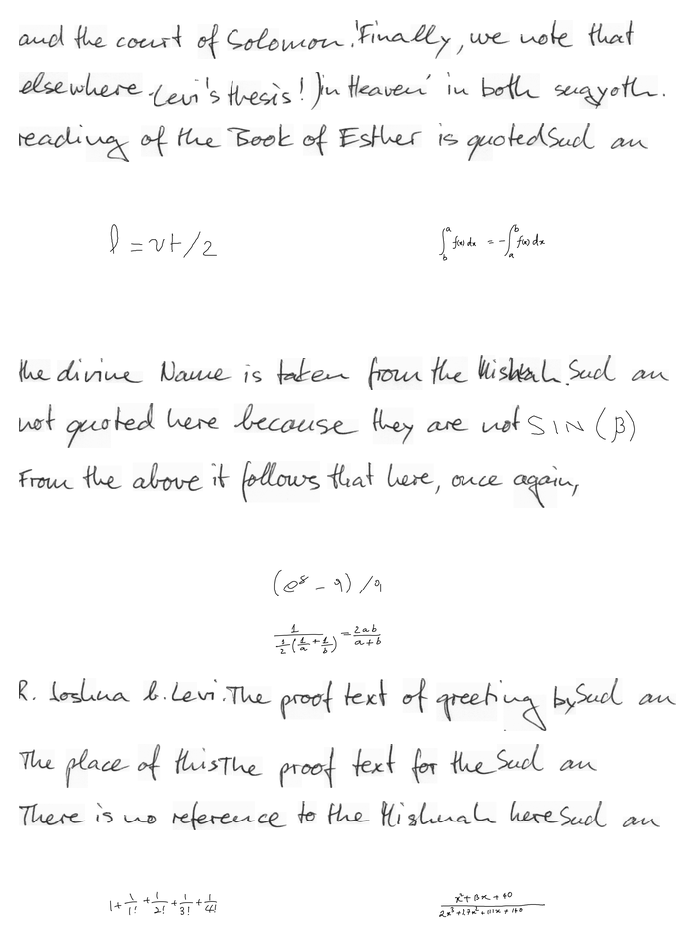 and the court of Solomon. 'Finally, we note that
elsewhere Levi's thesis! ) 'in Heaven' in both sugyoth.
reading of the Book of Esther is quoted Sud an
l = vt/2
\int_b^a f(x) dx = -\int_a^b f(x) dx
the divine Name is taken from the Mishnah. Sud an
not quoted here because they are not SIN (β)
From the above it follows that here, once again,
(e^8 - 9) /9
\frac{1}{\frac{1}{2}(\frac{1}{a}+\frac{1}{b})} = \frac{2ab}{a+b}
R. Joshua b. Levi. The proof text of greeting by Sud an
The place of this The proof text for the Sud an
There is no reference to the Mishnah here Sud an
1 + \frac{1}{1!} + \frac{1}{2!} + \frac{1}{3!} + \frac{1}{4!}
\frac{x^2 + 13x + 40}{2x^3 + 27x^2 + 111x + 140}